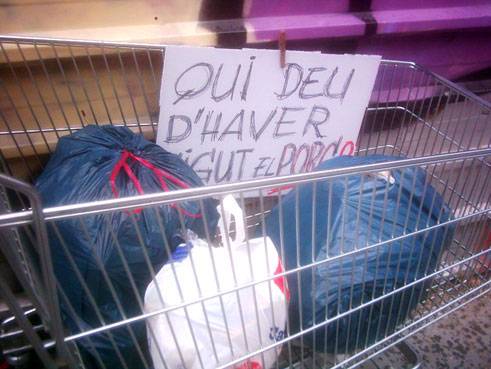 QUI DEU
D'HAVER
IGUT EL PORC